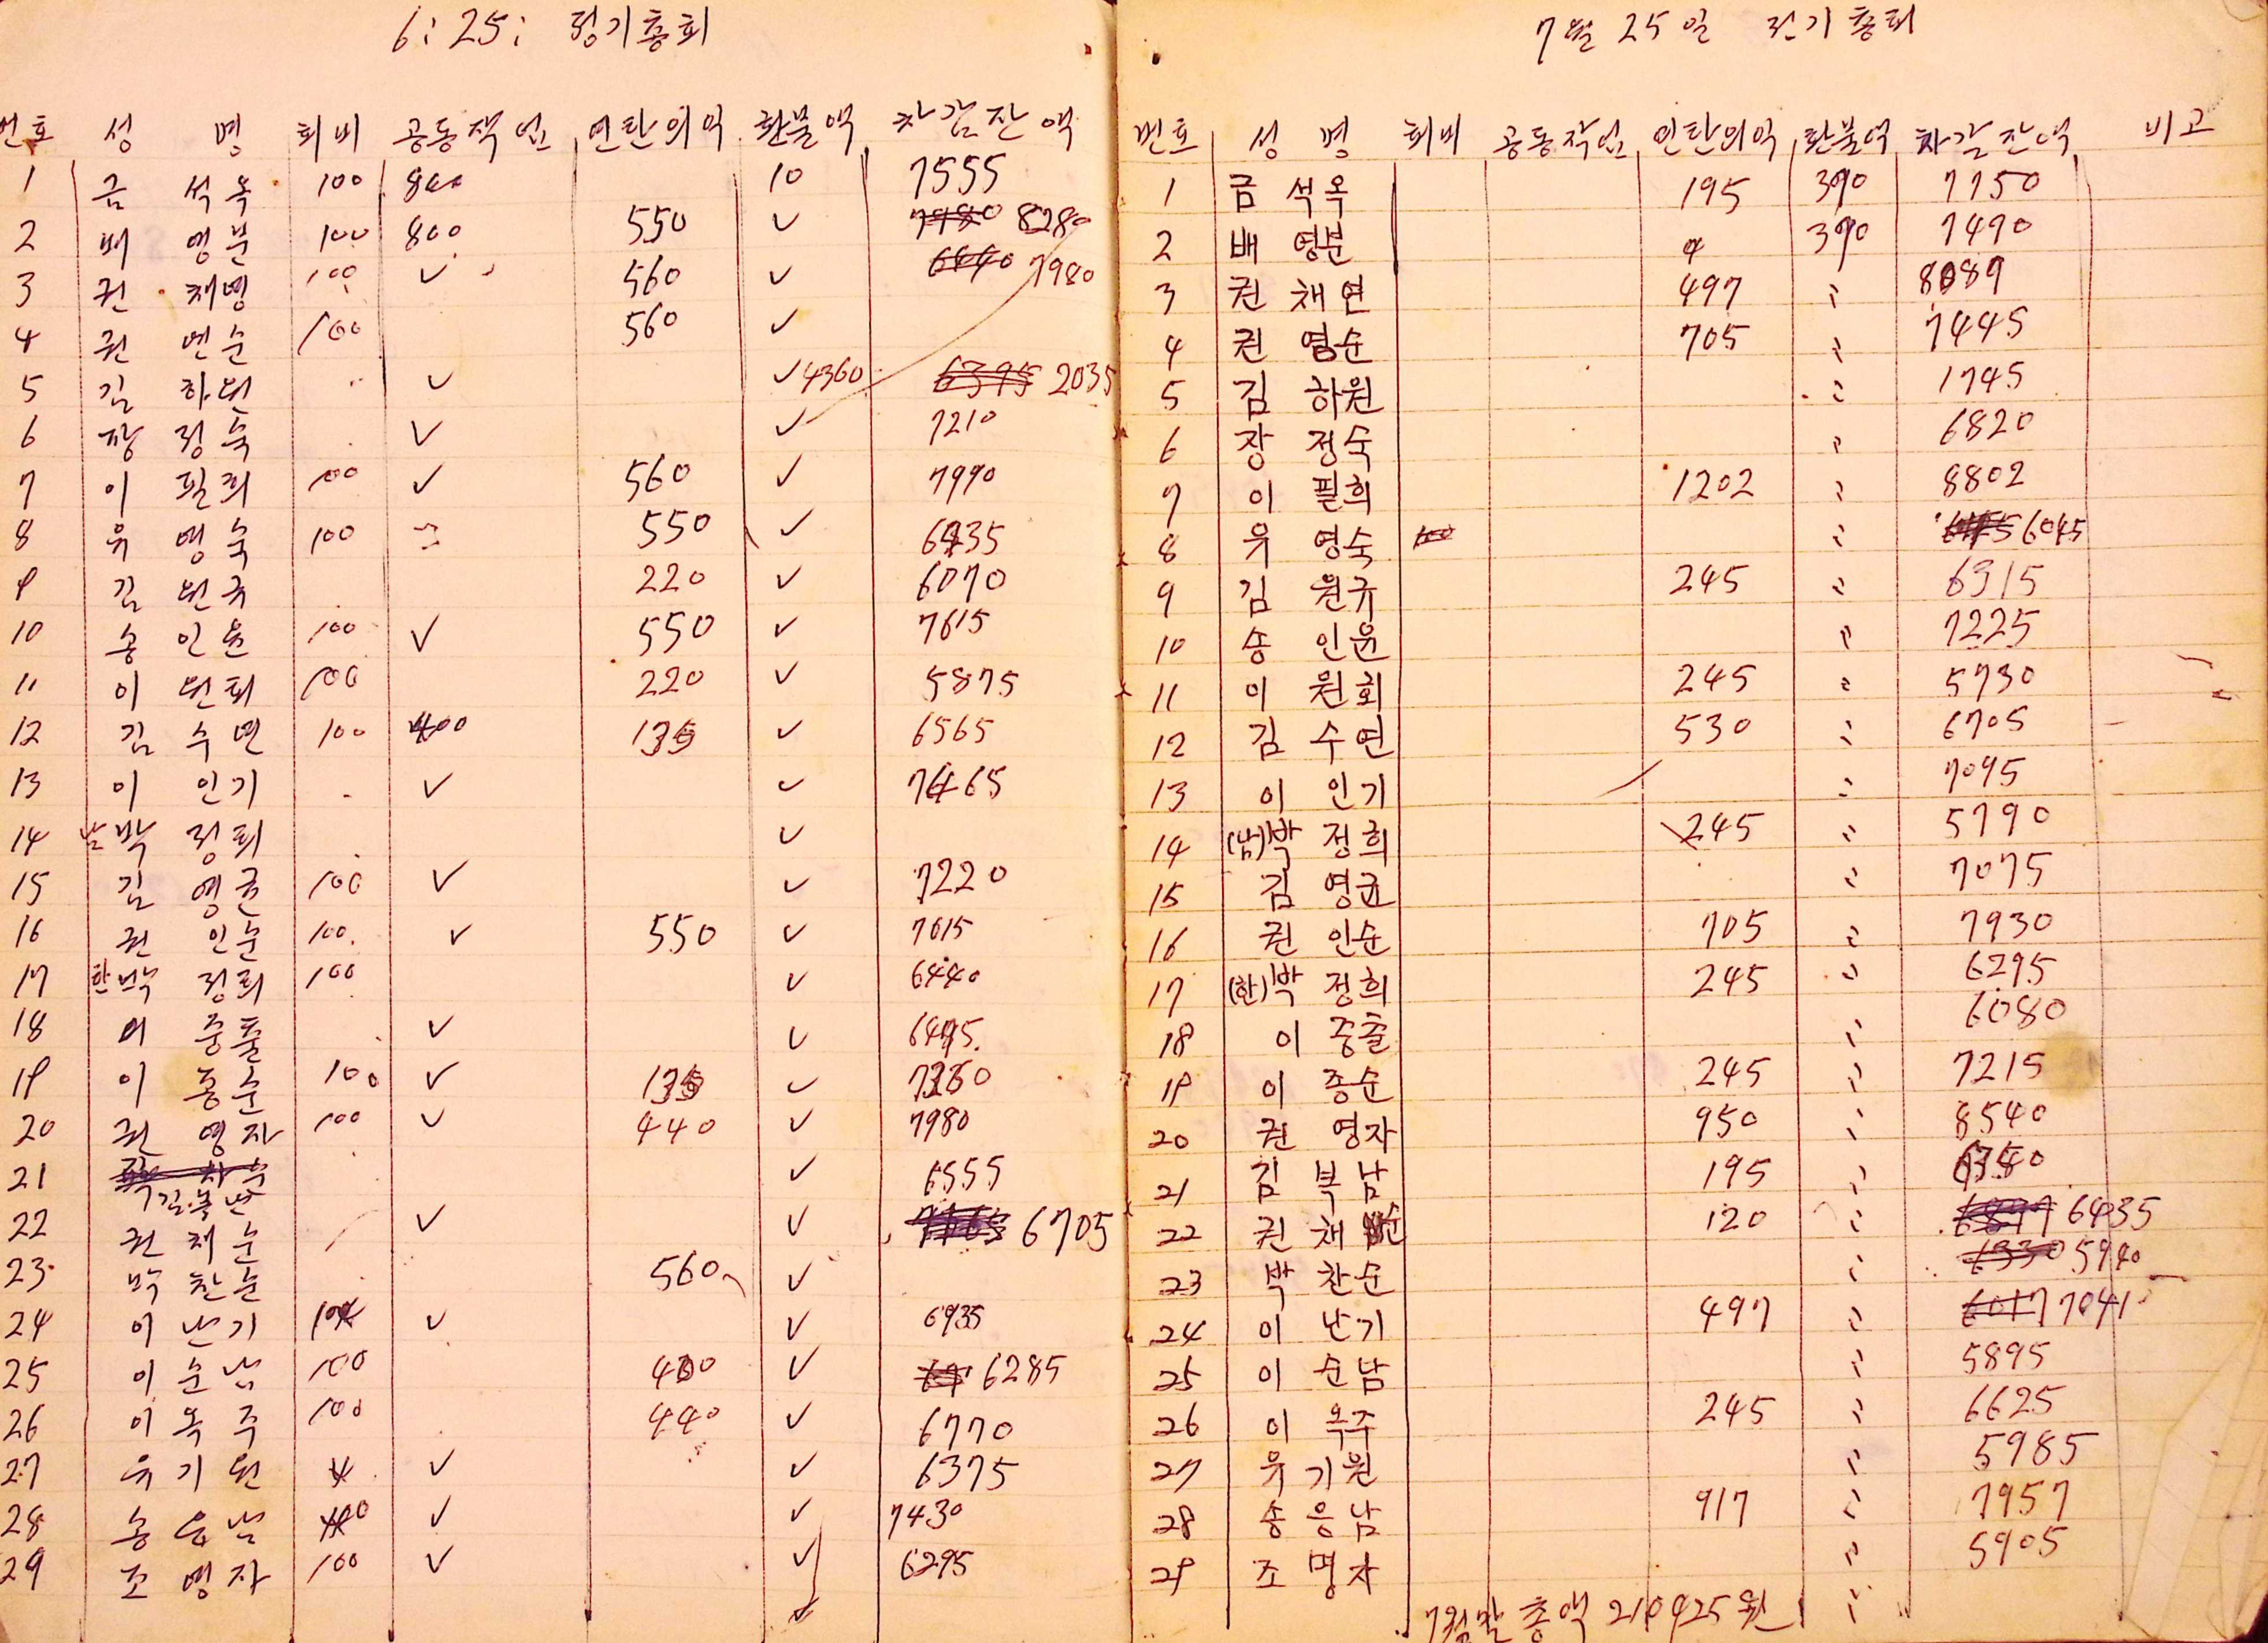 6: 25: 정기총회
번호 성 명 회비 공동작업 연탄의익 환불액 차감잔액
1 금 석옥 100 800 10 7555
2 배 영분 100 800 550 ✓ 8280
3 권 채영 100 ✓ 560 ✓ 7980
4 권 연순 100 560 ✓
5 김 하원 ✓ ✓ 4360 6395 2035
6 장 정숙 ✓ ✓ 7210
7 이 필희 100 ✓ 560 ✓ 7990
8 유 영숙 100 550 ✓ 6435
9 김 원규 220 ✓ 6070
10 송 인윤 100 ✓ 550 ✓ 7615
11 이 원회 100 220 ✓ 5875
12 김 수연 100 400 135 ✓ 6565
13 이 인기 ✓ ✓ 7465
14 남 박 정희 ✓
15 김 영균 100 ✓ ✓ 7220
16 권 인순 100 ✓ 550 ✓ 7615
17 한 박 정희 100 ✓ 6440
18 이 중출 ✓ ✓ 6475
19 이 종순 100 ✓ 135 ✓
20 권 영자 100 ✓ 440 ✓ 7980
21 김복남 ✓ 6555
22 권 채순 ✓ ✓ 6705
23 박 찬순 560 ✓
24 이 난기 100 ✓ ✓ 6935
25 이 순남 100 ✓ 6285
26 이 옥주 100 440 ✓ 6770
27 유 기원 ✓ ✓ 6375
28 송 응남 100 ✓ ✓ 7430
29 조 명자 100 ✓ ✓ 6295
7월 25일 전기총회
번호 성 명 회비 공동작업 연탄의익 환불액 차감잔액 비고
1 금 석옥 195 390 7750
2 배 영분 390 7490
3 권 채연 497 〃 8089
4 권 염순 705 〃 7445
5 김 하원 〃 1745
6 장 정숙 〃 6820
7 이 필희 1202 〃 8802
8 유 영숙 100 〃 6045
9 김 원규 245 〃 6315
10 송 인윤 〃 7225
11 이 원회 245 〃 5730
12 김 수연 530 〃 6705
13 이 인기 〃 7095
14 (남)박 정희 245 〃 5790
15 김 영균 〃 7075
16 권 인순 705 〃 7930
17 (한)박 정희 245 〃 6295
18 이 중출 〃 6080
19 이 종순 245 〃 7215
20 권 영자 950 〃 8540
21 김 복남 195 〃
22 권 채순 120 〃 6435
23 박 찬순 〃 6330 5940
24 이 난기 497 〃 6017 7041
25 이 순남 〃 5895
26 이 옥주 245 〃 6625
27 유 기원 〃 5985
28 송 응남 917 〃 7957
29 조 명자 〃 5905
7월말 총액 210425원 〃